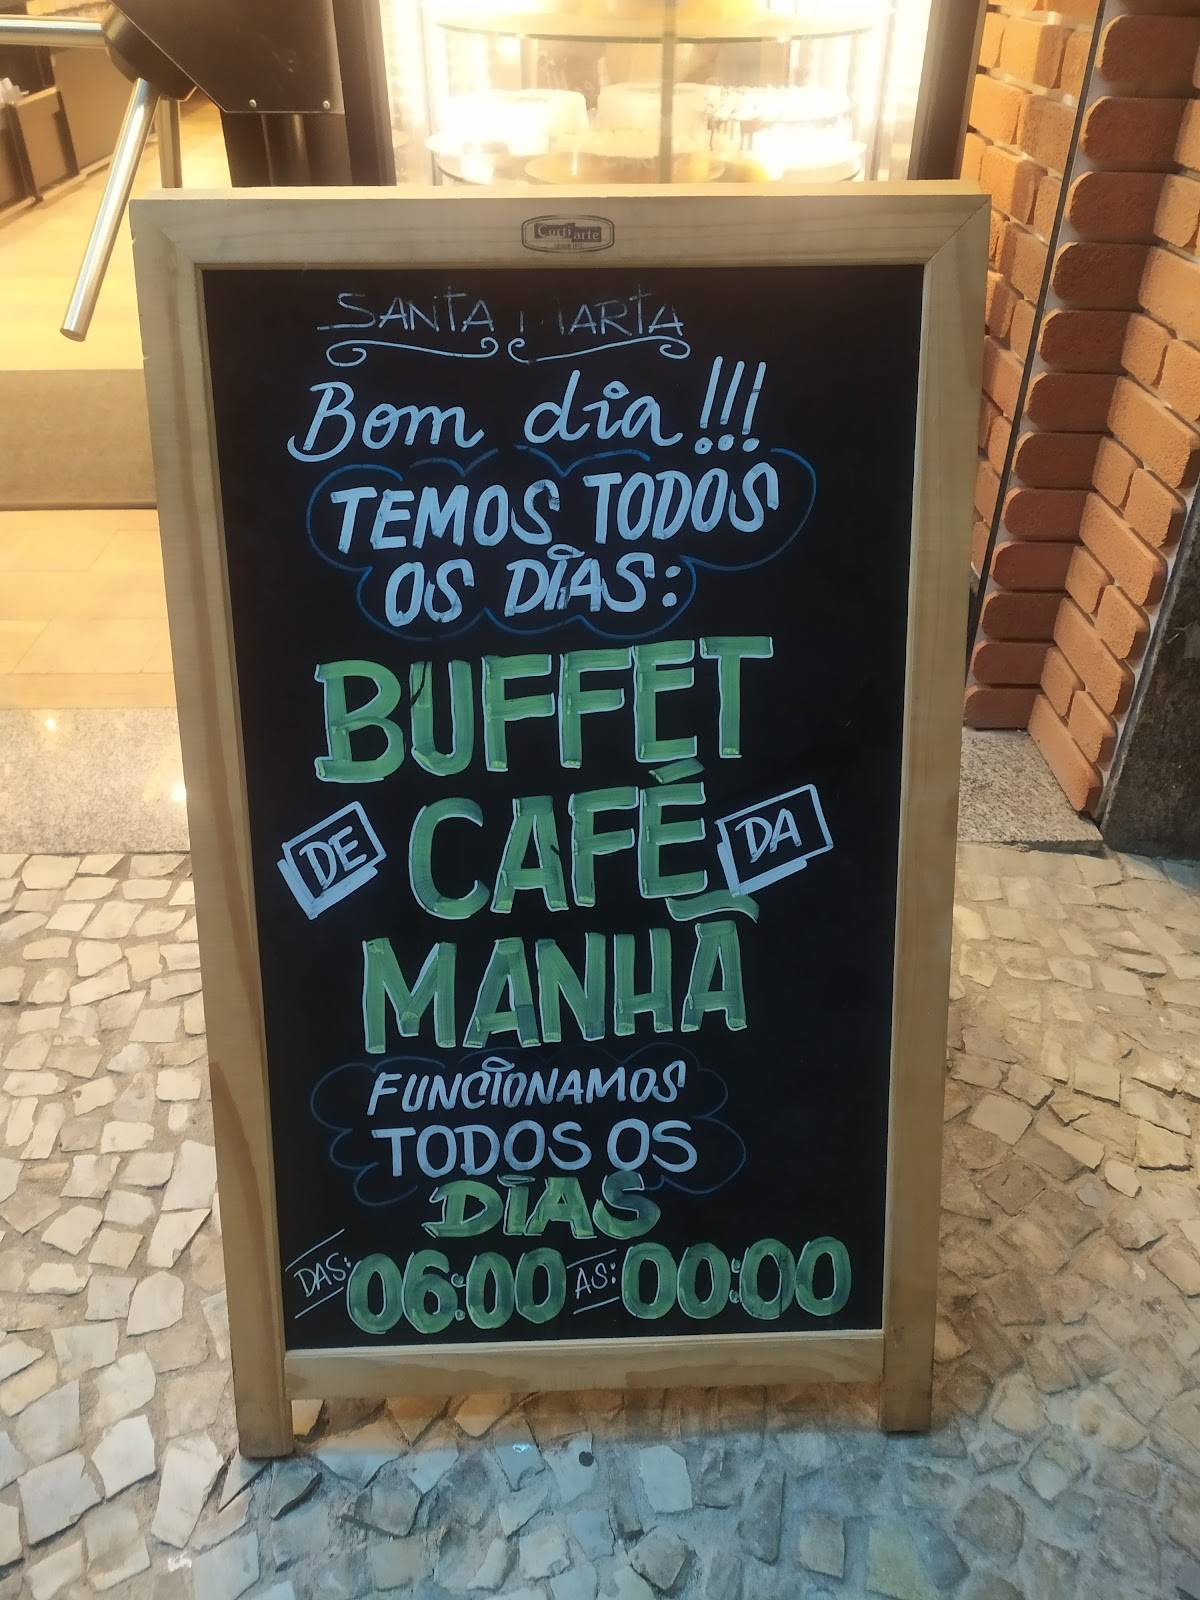 Corti arte
SANTA MARTA
Bom dia!!!
TEMOS TODOS
OS DIAS:
BUFFET
DE CAFÉ DA
MANHÃ
FUNCIONAMOS
TODOS OS
DIAS
DAS: 06:00 AS: 00:00